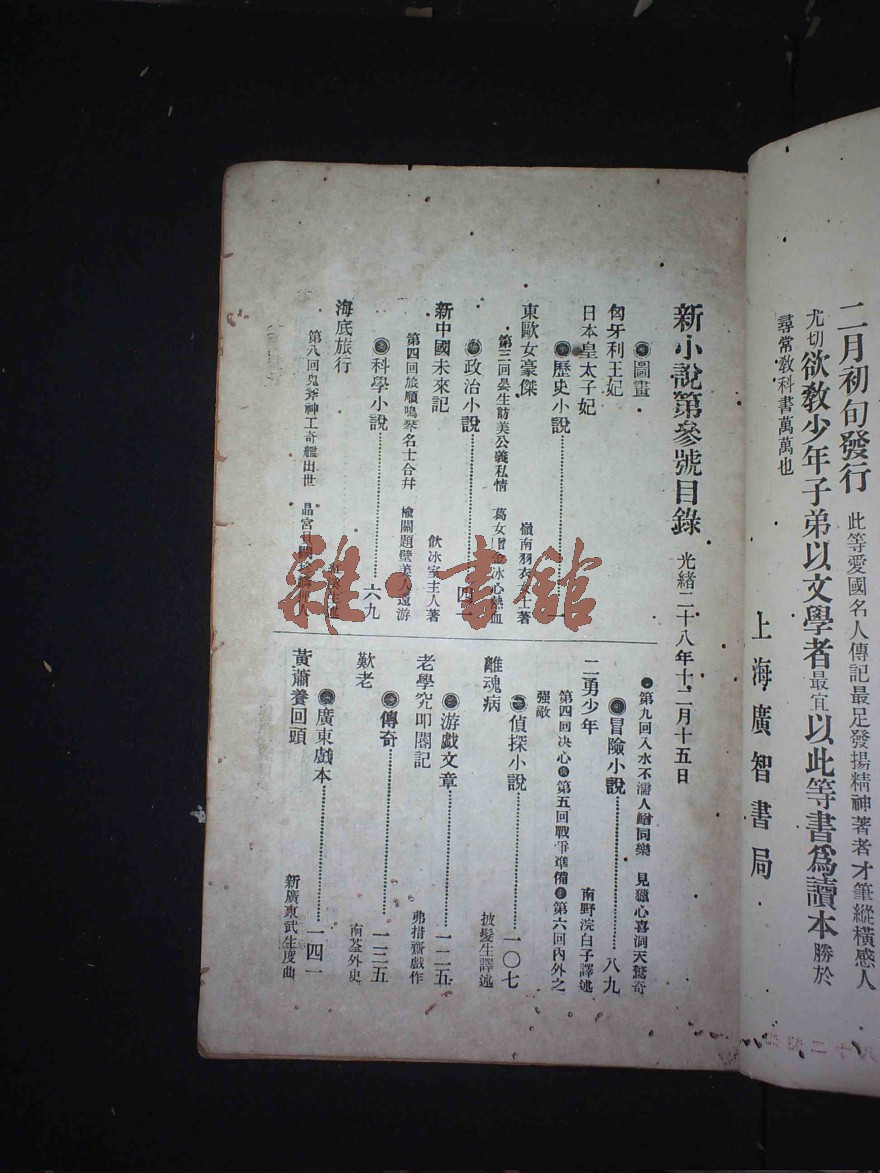 二月初旬發行 此等愛國名人傳記最足發揚精神著者才筆縱橫感人
尤切欲教少年子弟以文學者最宜以此等書爲讀本勝於
尋常教科書萬萬也
上海廣智書局
新小說第參號目錄 光緒二十八年十二月十五日
●圖畫
匈牙利王妃
日本皇太子妃
●歷史小說
東歐女豪傑 嶺南羽衣女士著
第三回晏生訪美公義私情 葛女 金冰心熱血
●政治小說 四
新中國未來記 飲冰室主人著
第四回旅順鳴琴名士合并 榆關題壁美人遠游
●科學小說 六九
海底旅行
第八回鬼斧神工奇艦出世 晶宮
第九回入水不濡人 同樂 見獵心喜洞天驚奇
●冒險小說 八九
二勇少年 南野浣白子譯述
第四回決心●第五回戰爭準備●第六回內外之
強敵
●偵探小說 一〇七
離魂病 披髮生譯述
●游戲文章 一二五
老學究叩閽記 弗措齋戲作
●傳奇 一三五
歎老 南荃外史
●廣東戲本 一四一
黃蕭養回頭 新廣東武生度曲
雜·書館